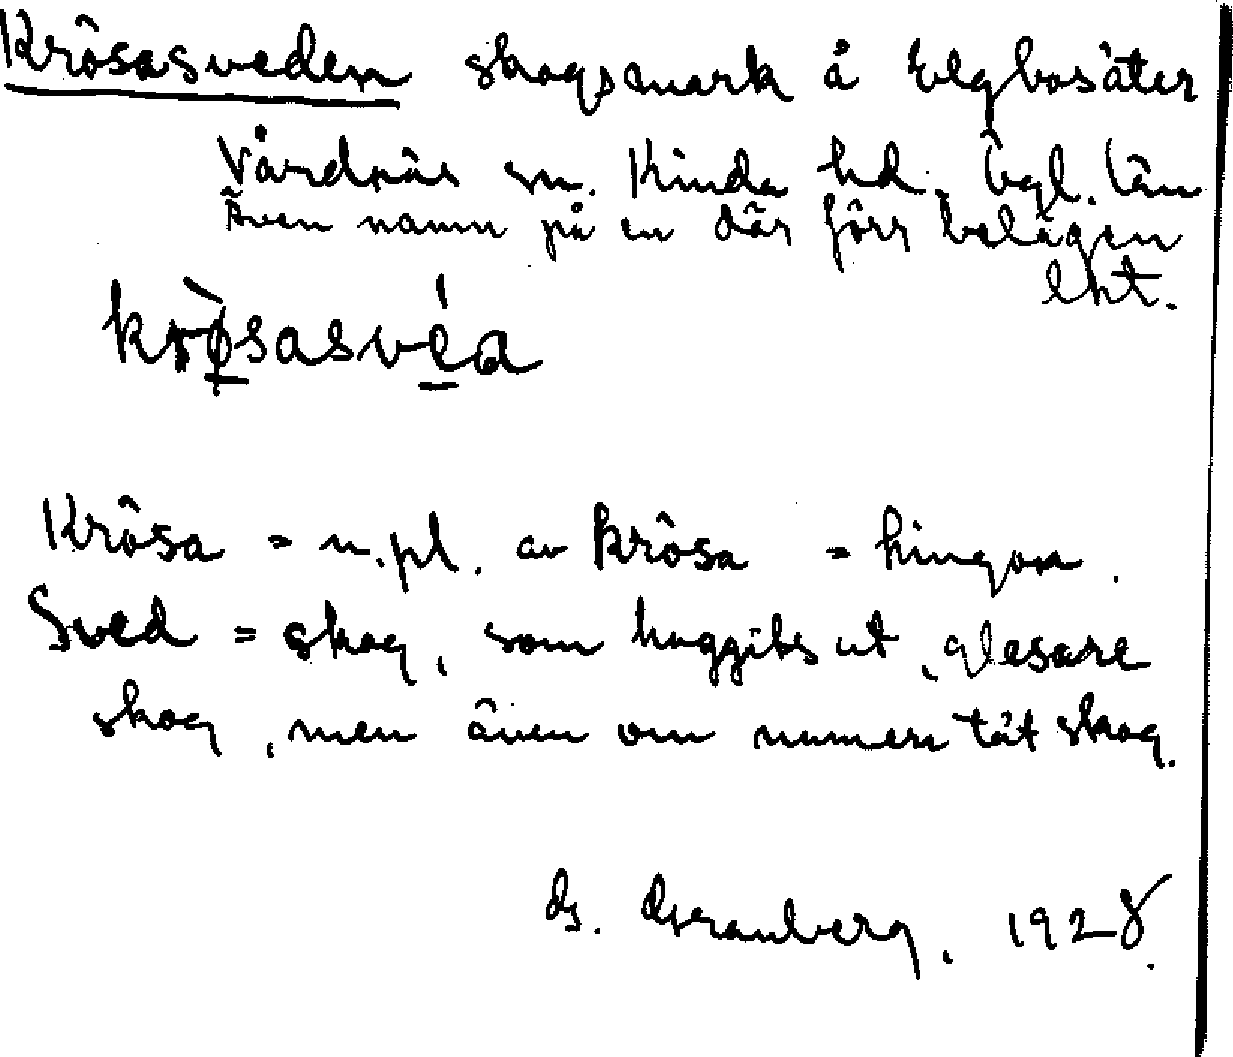 Krösasveden skogsmark å Elgbosäter
Vårdnäs sn. Kinda hd. Ögl. län
Även namn på en där förr belägen
lht.
krø̀sasve̍a
Krösa = n. pl. av krösa = lingon.
Sved = skog, som huggits ut, glesare
skog, men även om numera tät skog.
G. Granberg. 1928.